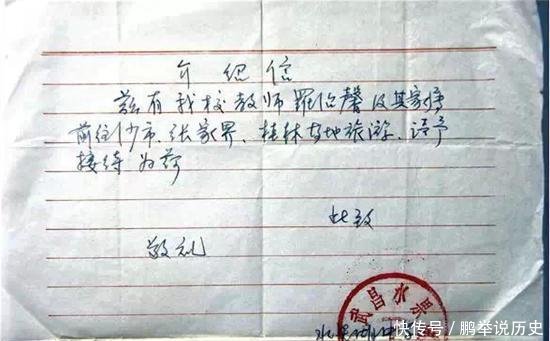 介绍信
兹有我校教师罗伯馨及其家停
前往沙市、张家界、桂林等地旅游、请予
接待为荷
此致
敬礼
武昌水果
快传号/鹏举说历史